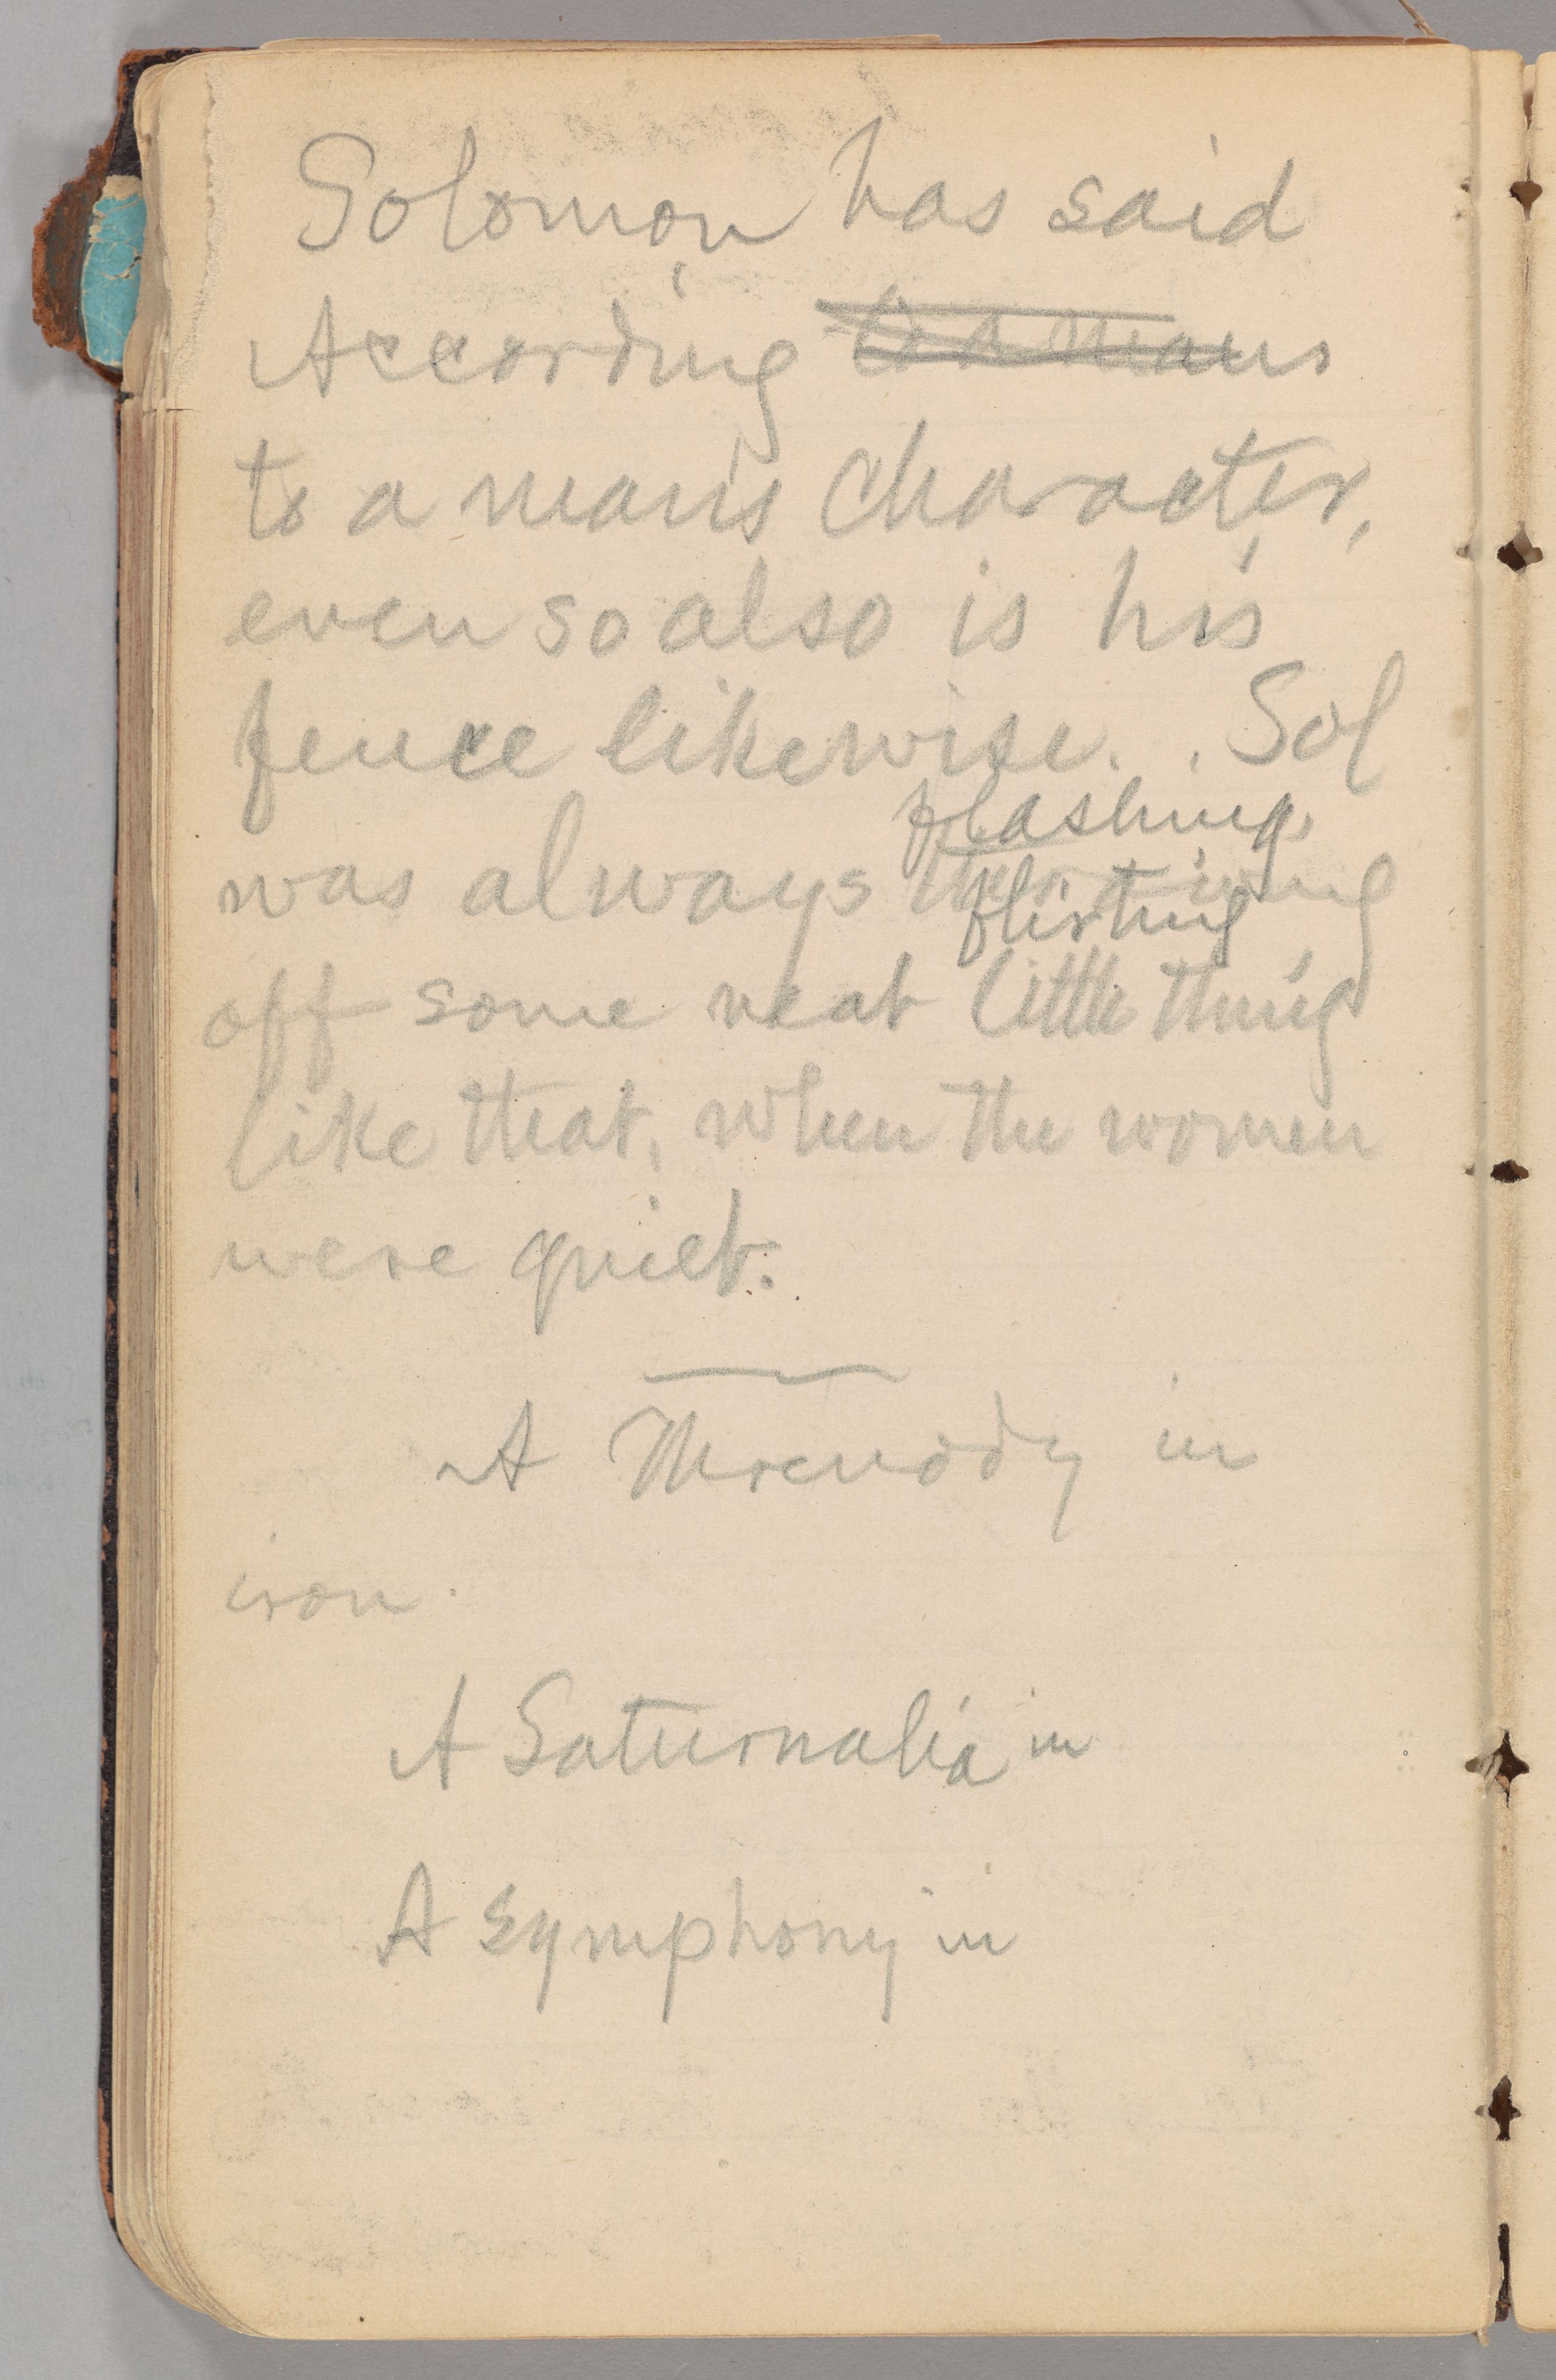 Solomon has said
According to a mans
to a man's character,
even so also is his
fence likewise. Sol
flashing
was always throwing
flirting
off some neat little thing
like that, when the women
were quiet.
A Threnody in
iron.
A Saturnalia in
A Symphony in